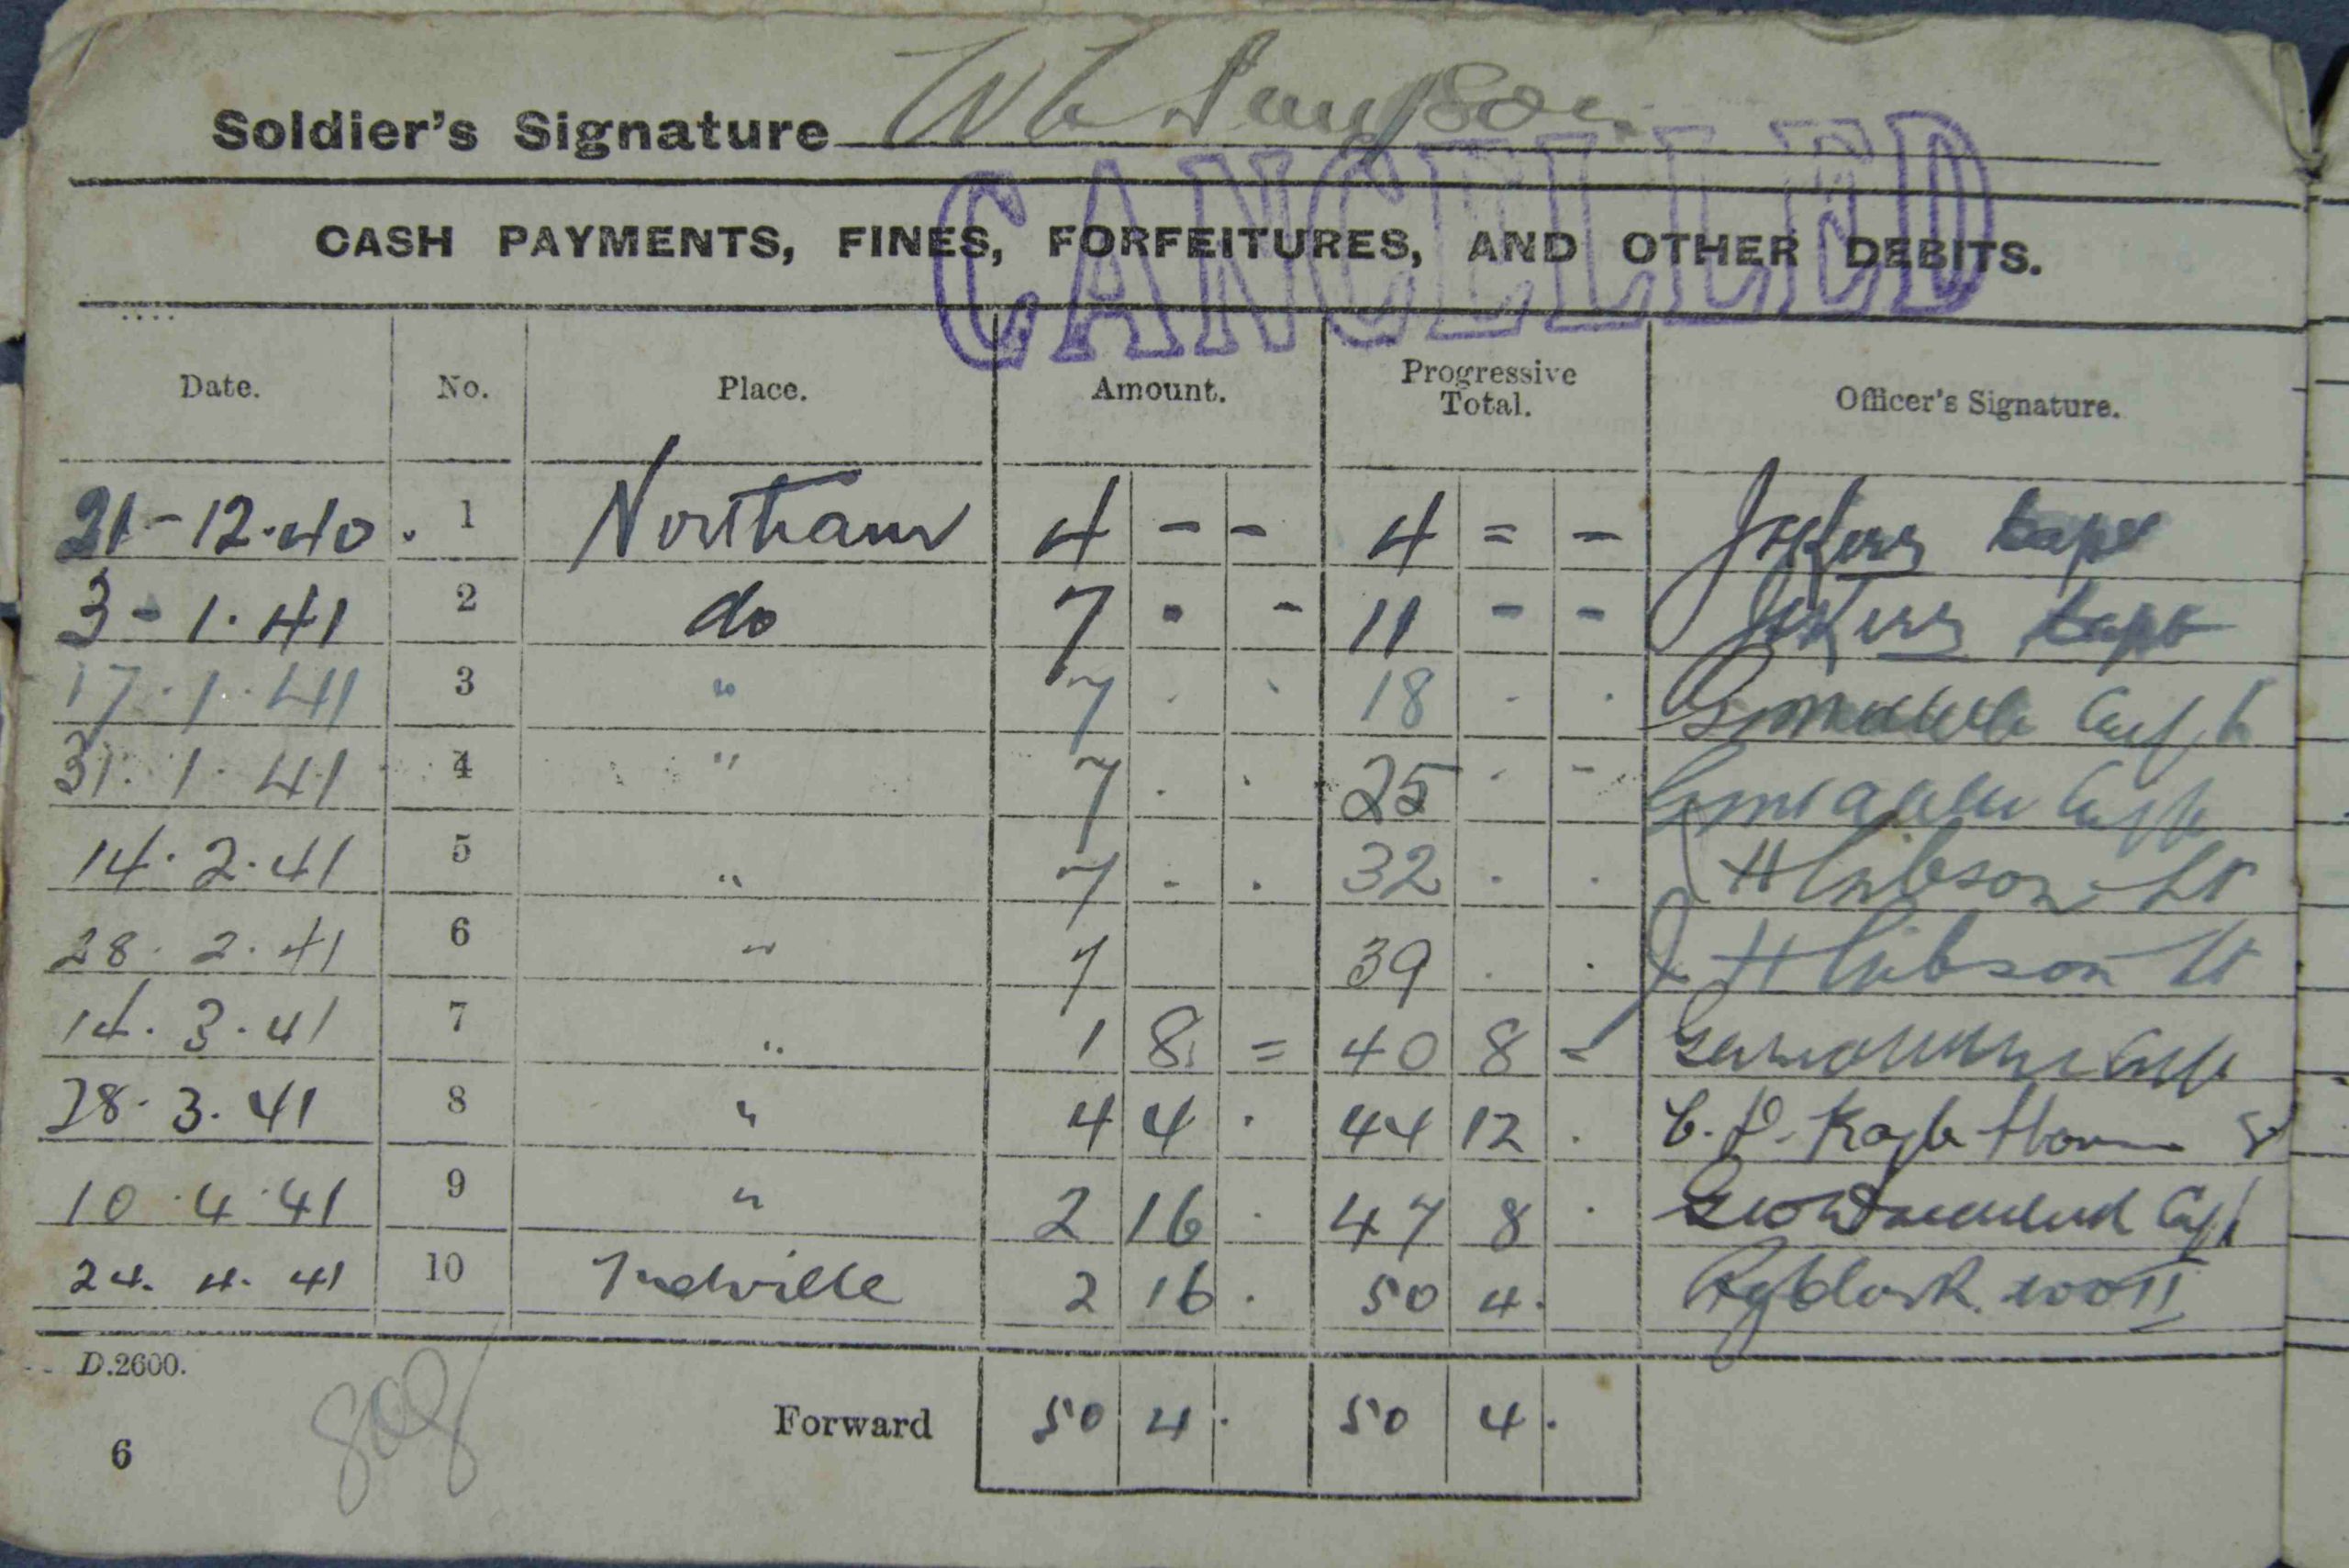 Soldier's Signature W Simpson
CANCELLED
CASH PAYMENTS, FINES, FORFEITURES, AND OTHER DEBITS.
Date. No. Place. Amount. Progressive Total. Officer's Signature.
21-12.40. 1 Northam 4 - - 4 = - Kerr Capt
3-1.41 2 do 7 - - 11 - - Kerr Capt
17.1.41 3 " 7 . . 18 . . Capt
31.1.41 4 " 7 . . 25 . - Capt
14.2.41 5 " 7 . . 32 . . J H Gibson Lt
28.2.41 6 " 7 39 . . J H Gibson Lt
14.3.41 7 " 1 8 = 40 8 - Capt
28.3.41 8 " 4 4 . 44 12 .
10.4.41 9 " 2 16 . 47 8 . Capt
24.4.41 10 2 16 . 50 4 . Clark. WOII
D.2600.
Forward 50 4 . 50 4 .
6